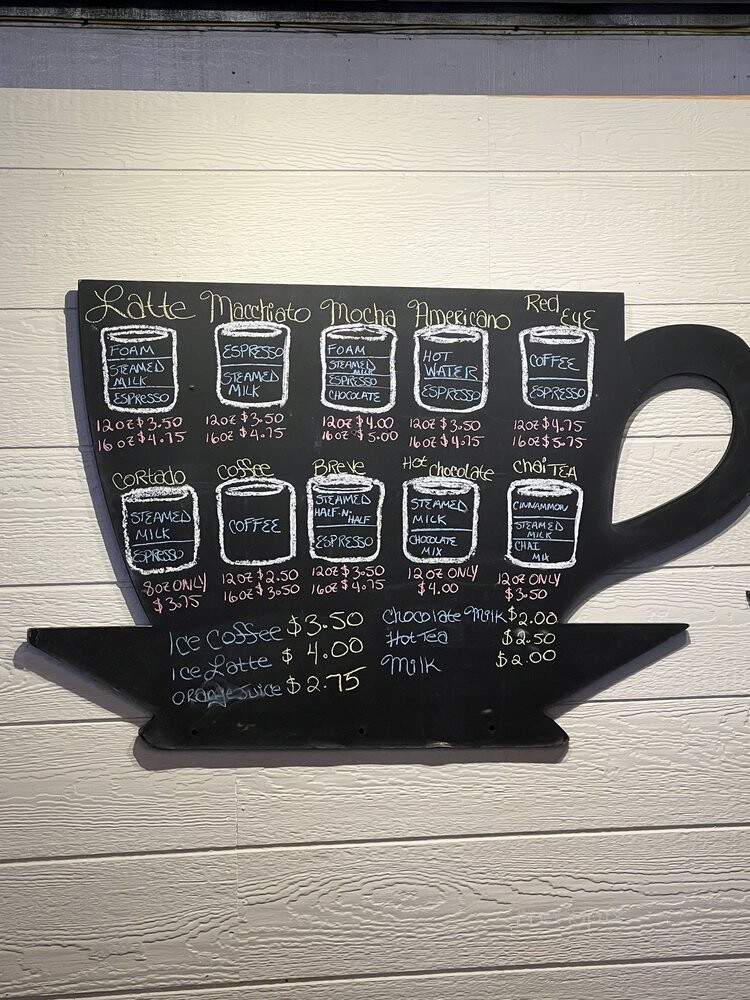 Latte
FOAM
STEAMED
MILK
ESPRESSO
12oz $3.50
16oz $4.75
Macchiato
ESPRESSO
STEAMED
MILK
12oz $3.50
16oz $4.75
Mocha
FOAM
STEAMED
MILK
ESPRESSO
CHOCOLATE
12oz $4.00
16oz $5.00
Americano
HOT
WATER
ESPRESSO
12oz $3.50
16oz $4.75
Red
EYE
COFFEE
ESPRESSO
12oz $4.75
16oz $5.75
CORTADO
STEAMED
MILK
ESPRESSO
8oz ONLY
$3.75
Coffee
COFFEE
12oz $2.50
16oz $3.50
BREVE
STEAMED
HALF-N-
HALF
ESPRESSO
12oz $3.50
16oz $4.75
Hot Chocolate
STEAMED
MILK
CHOCOLATE
MIX
12oz ONLY
$4.00
Chai TEA
CINNAMMON
STEAMED
MILK
CHAI
MIX
12oz ONLY
$3.50
ICE COFFEE $3.50
ICE Latte $4.00
ORANGE JUICE $2.75
Chocolate Milk $2.00
Hot Tea $2.50
Milk $2.00